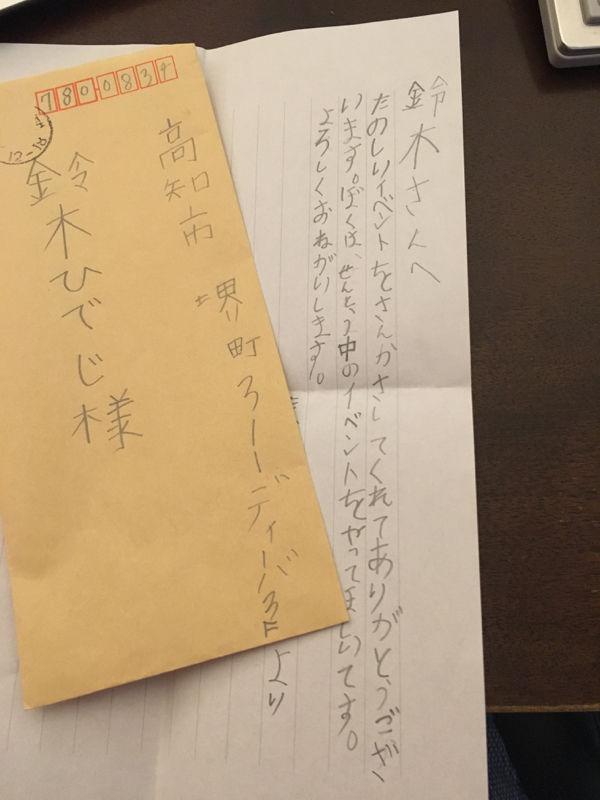 7800834
高知市
堺町 ディーバ3F
鈴木ひでじ様
鈴木さんへ
たのしいイベントをさんかさしてくれてありがとうござ
います。ぼくは、せんとう中のイベントをやってほしいです。
よろしくおねがいします。
より